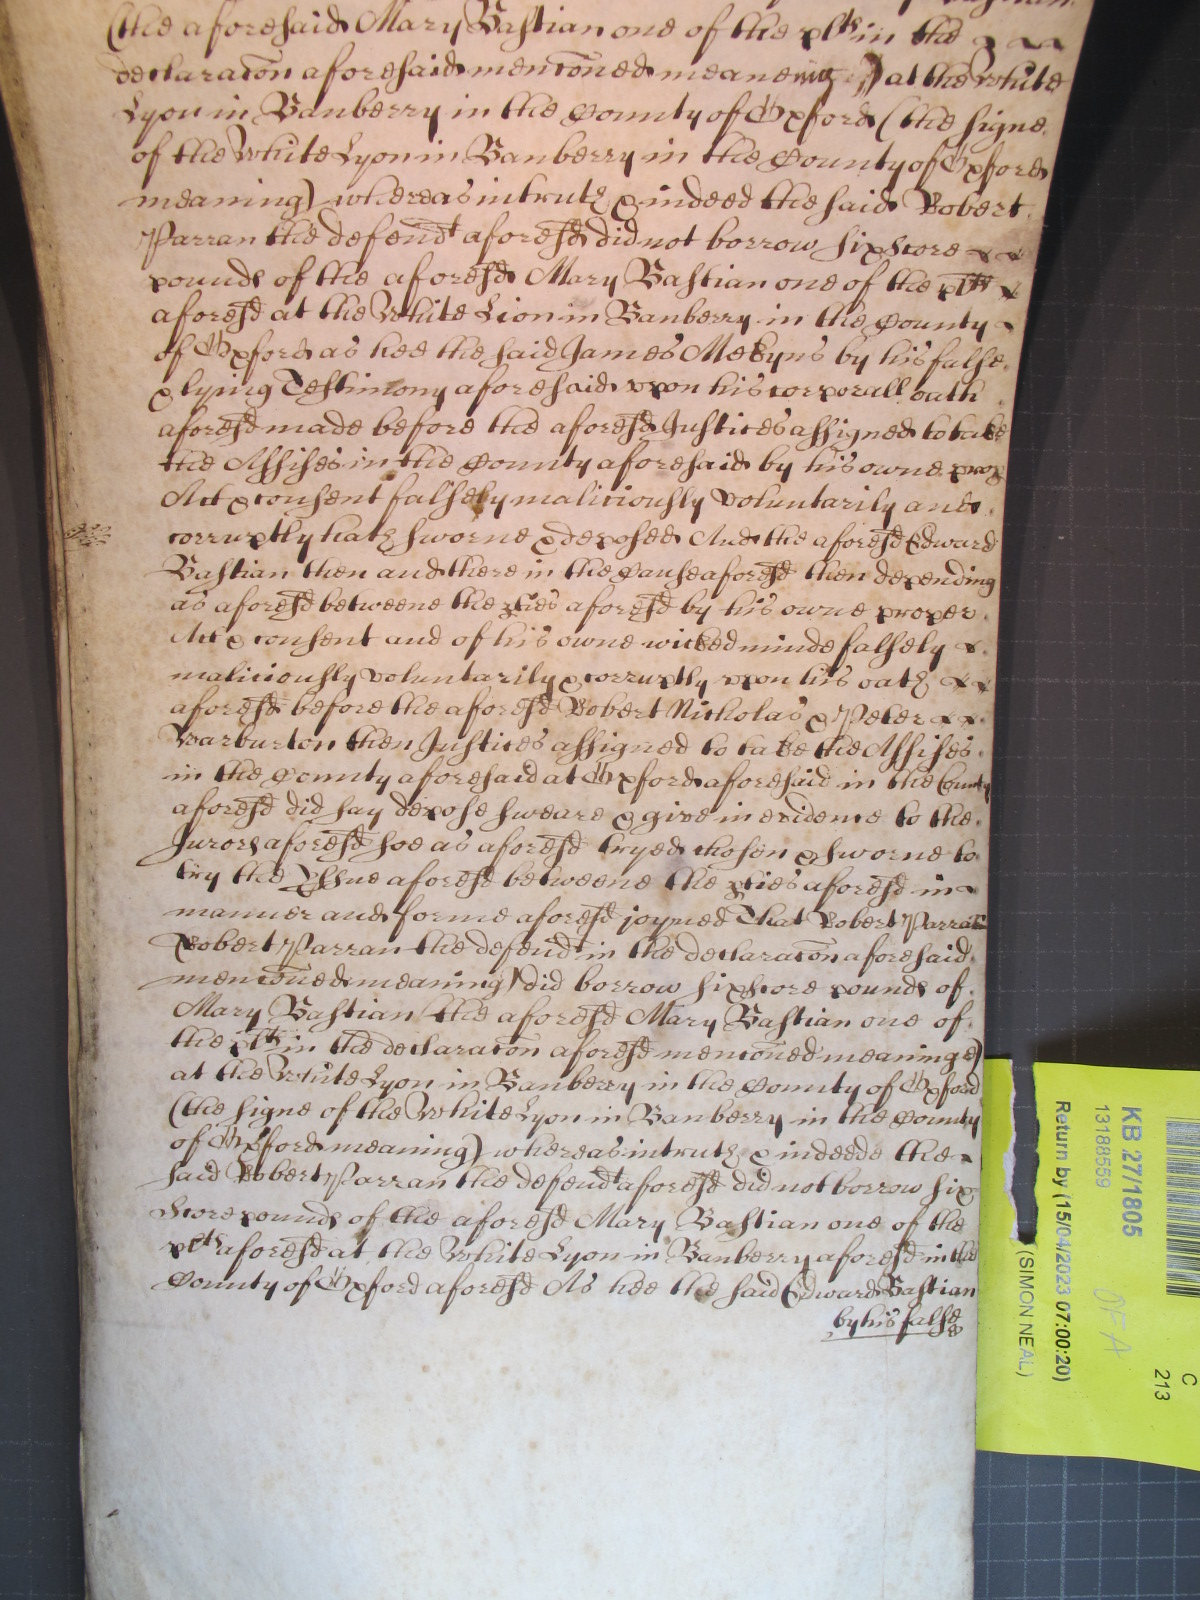 (the aforesaid Mary Bastian one of the plts in the
declaracon aforesaid menconed meaneing) at the White
Lyon in Banberry in the County of Oxford (the signe
of the White Lyon in Banberry in the County of Oxford
meaning) whereas in truth & indeed the said Robert
Parran the defendt aforesd did not borrow six score
pounds of the aforesd Mary Bastian one of the plts
aforesd at the White Lion in Banberry in the County
of Oxford as hee the said James Mekyns by his false
& lying Testimony aforesaid upon his corporall oath
aforesd made before the aforesd Justices assigned to take
the Assises in the County aforesaid by his owne prop
Act & consent falsely maliciously voluntarily and
corruptly hath sworne & deposed And the aforesd Edward
Bastian then and there in the Cause aforesd then depending
as aforesd betweene the pties aforesd by his owne proper
Act & consent and of his owne wicked minde falsely
maliciously voluntarily & corruptly upon his oath
aforesd before the aforesd Robert Nicholas & Peter
Warburton then Justices assigned to take the Assises
in the County aforesaid at Oxford aforesaid in the County
aforesd did say depose sweare & give in evidence to the
Jurors aforesd soe as aforesd tryed chosen & sworne to
try the Issue aforesd betweene the pties aforesd in
manner and forme aforesd joyned That Robert Parran
Robert Parran the defendt in the declaracon aforesaid
menconed meaning) did borrow six score pounds of
Mary Bastian the aforesd Mary Bastian one of
the plts in the declaracon aforesd menconed meaninge)
at the White Lyon in Banberry in the County of Oxford
(the signe of the White Lyon in Banberry in the County
of Oxford meaning) whereas in truth & indeede the
said Robert Parran the defendt aforesd did not borrow six
score pounds of the aforesd Mary Bastian one of the
plts aforesd at the White Lyon in Banberry aforesd in the
County of Oxford aforesd As hee the said Edward Bastian
by his false
KB 27/1805
13188559
Return by (15/04/2023 07:00:20)
(SIMON NEAL)
C
213